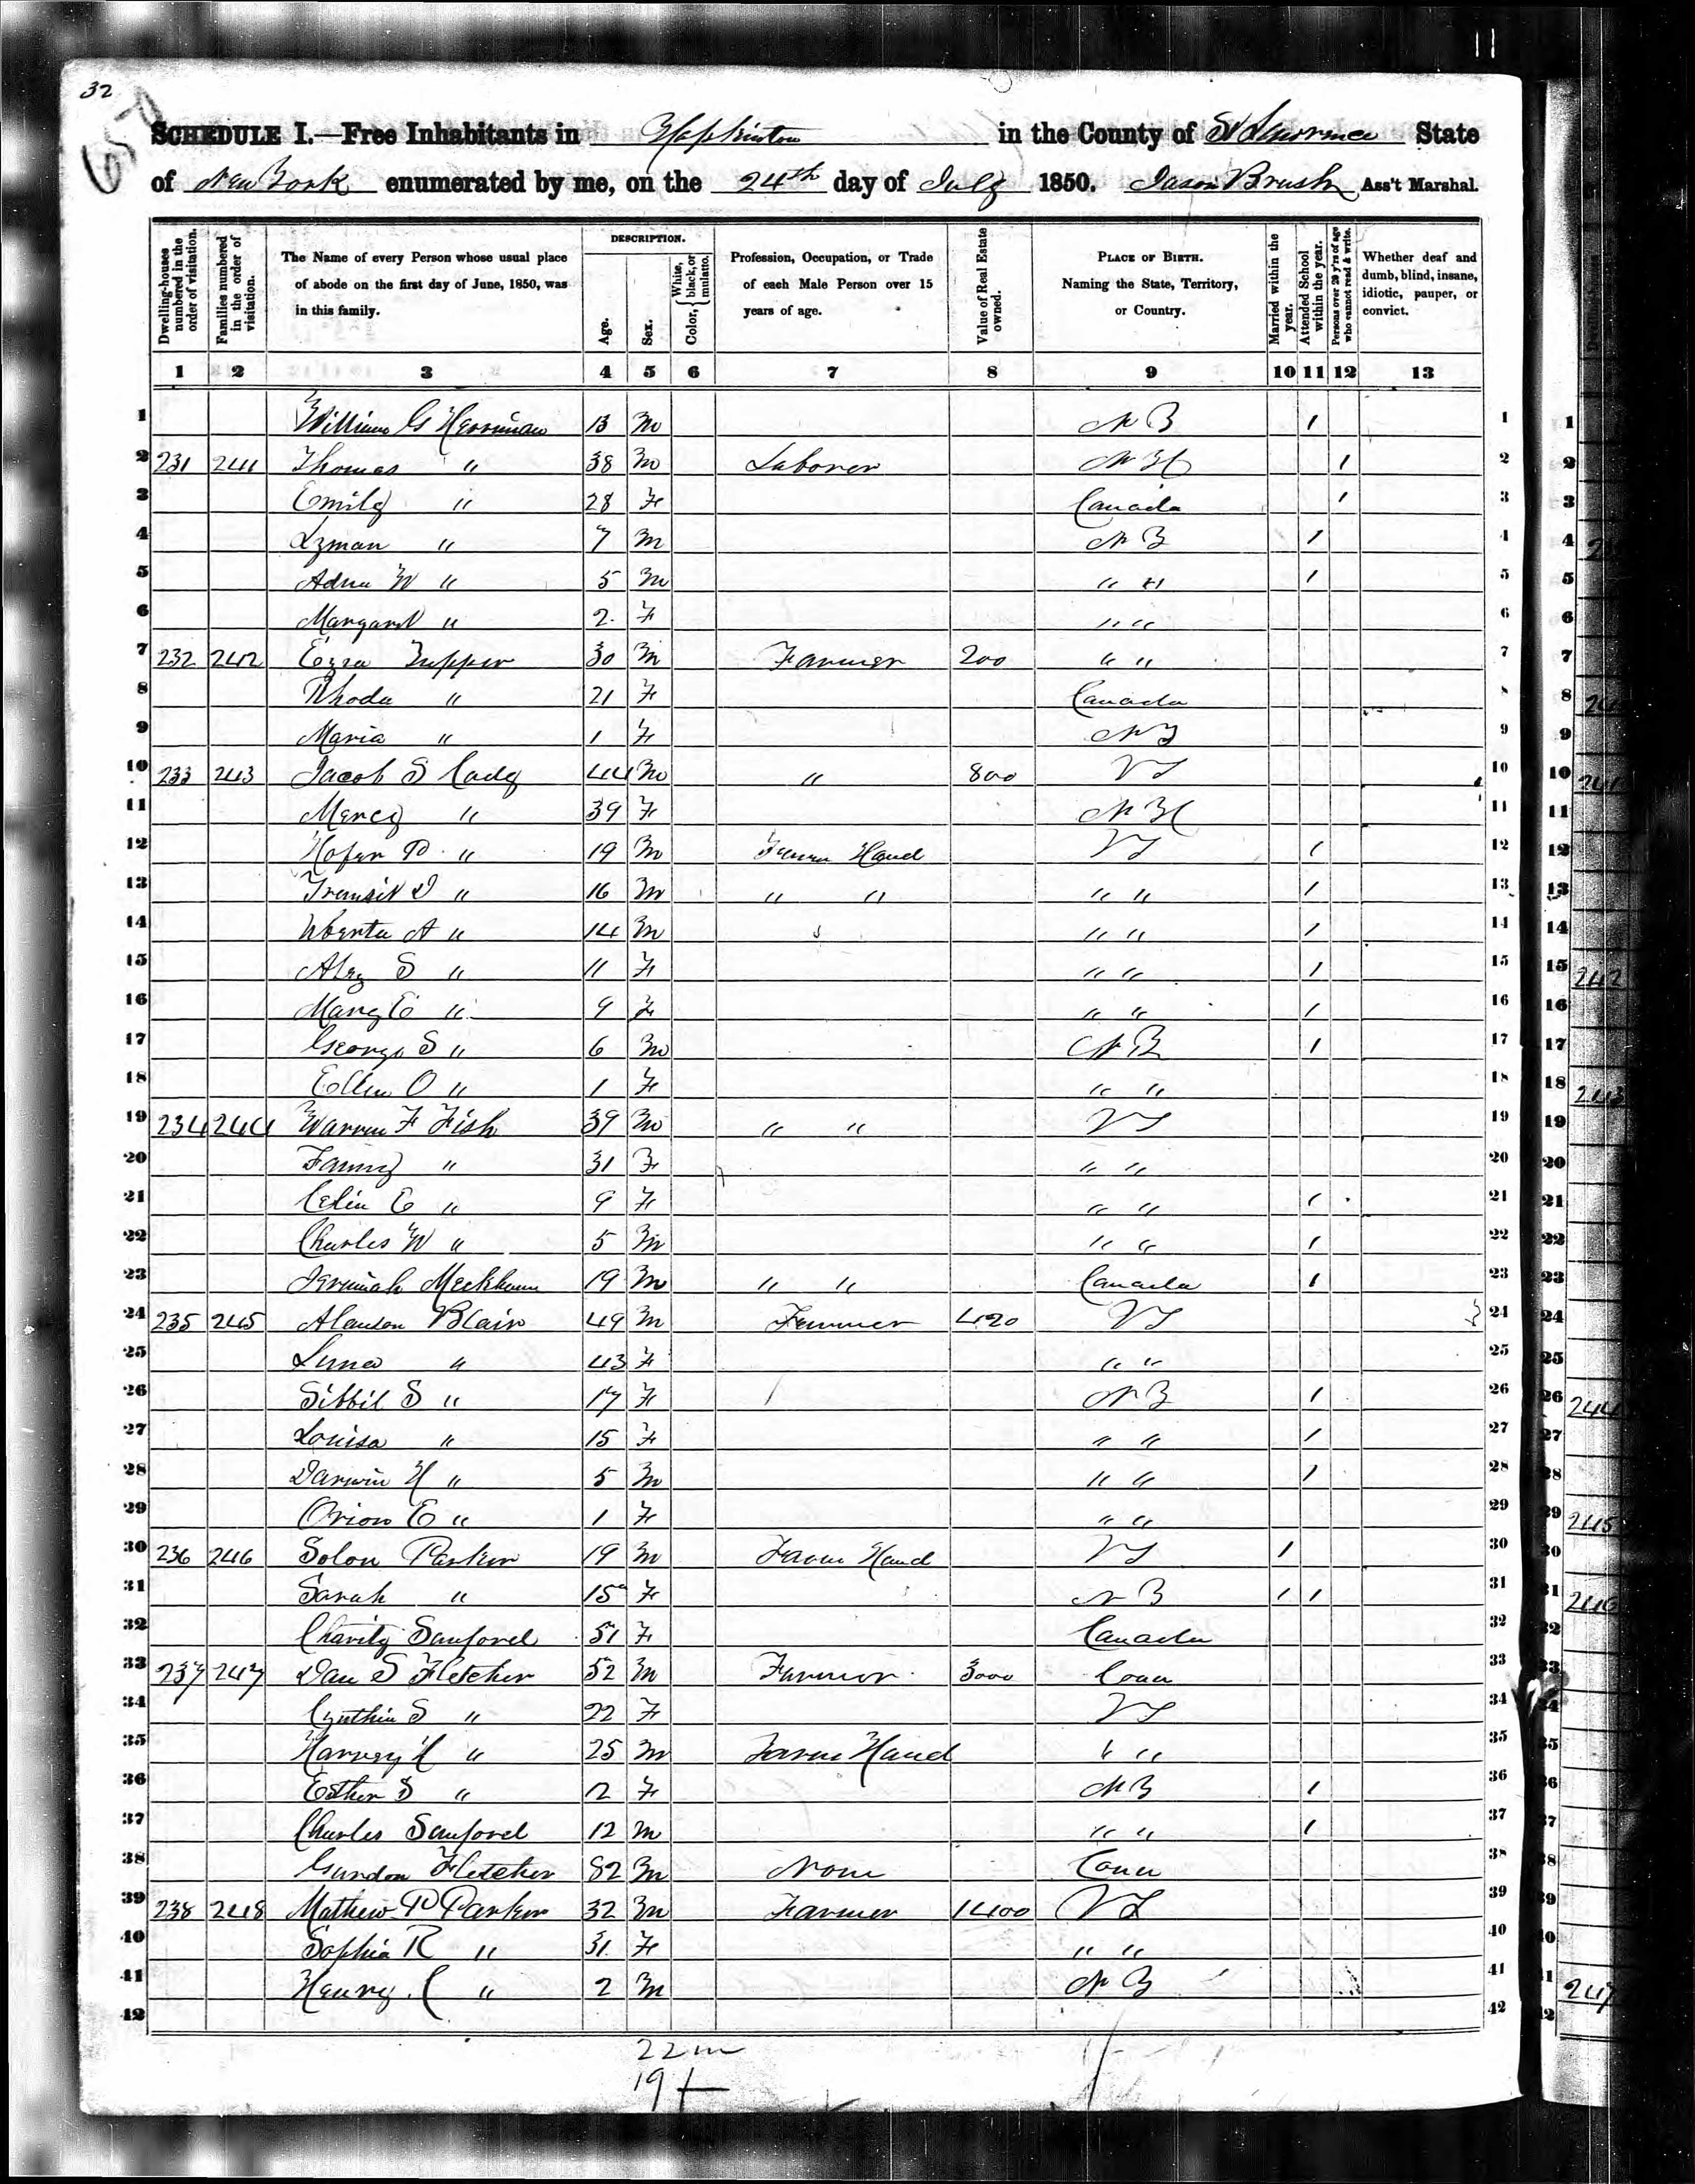 11
32
SCHEDULE I.—Free Inhabitants in Hopkinton in the County of St Lawrence State
of New York enumerated by me, on the 24th day of July 1850. Jason Brush Ass't Marshal.
Dwelling-houses numbered in the order of visitation.
Families numbered in the order of visitation.
The Name of every Person whose usual place of abode on the first day of June, 1850, was in this family.
DESCRIPTION.
Age.
Sex.
Color, { White, black, or mulatto.
Profession, Occupation, or Trade of each Male Person over 15 years of age.
Value of Real Estate owned.
PLACE OF BIRTH. Naming the State, Territory, or Country.
Married within the year.
Attended School within the year.
Persons over 20 y'rs of age who cannot read & write.
Whether deaf and dumb, blind, insane, idiotic, pauper, or convict.
1 2 3 4 5 6 7 8 9 10 11 12 13
1 William G Herriman 13 m N Y 1 1
2 231 241 Thomas " 38 m Laborer N H 1 2
3 Emily " 28 F Canada 1 3
4 Lyman " 7 m N Y 1 4
5 Adna W " 5 m " " 1 5
6 Margaret " 2 F " " 6
7 232 242 Ezra Tupper 30 m Farmer 200 " " 7
8 Rhoda " 21 F Canada 8
9 Maria " 1 F N Y 9
10 233 243 Jacob S Cady 44 m " 800 VT 10
11 Mercy " 39 F N H 11
12 " 19 m Farm Hand VT 1 12
13 " 16 m " " " " 1 13
14 A " 14 m " " 1 14
15 S " 11 F " " 1 15
16 Mary E " 9 F " " 1 16
17 George S " 6 m N Y 1 17
18 Ellen O " 1 F " " 18
19 234 244 Warren F Fish 39 m " " VT 19
20 Fanny " 31 F " " 20
21 E " 9 F " " 1 21
22 Charles W " 5 m " " 1 22
23 Jeremiah 19 m " " Canada 1 23
24 235 245 Alanson Blair 49 m Farmer 420 VT 24
25 " 43 F " " 25
26 Sibbil S " 17 F N Y 1 26
27 Louisa " 15 F " " 1 27
28 Darwin H " 5 m " " 1 28
29 Orion E " 1 F " " 29
30 236 246 Solon Parker 19 m Farm Hand VT 1 30
31 Sarah " 15 F N Y 1 1 31
32 Charity Sanford 51 F Canada 32
33 237 247 Dan S Fletcher 52 m Farmer 3000 Conn 33
34 Cynthia S " 22 F VT 34
35 Harvey H " 25 m Farm Hand " " 35
36 Esther S " 12 F N Y 1 36
37 Charles Sanford 12 m " " 1 37
38 Gurdon Fletcher 82 m None Conn 38
39 238 248 Mathew P Parker 32 m Farmer 1400 VT 39
40 Sophia R " 31 F " " 40
41 Henry C " 2 m N Y 41
42 42
22 m
19 f